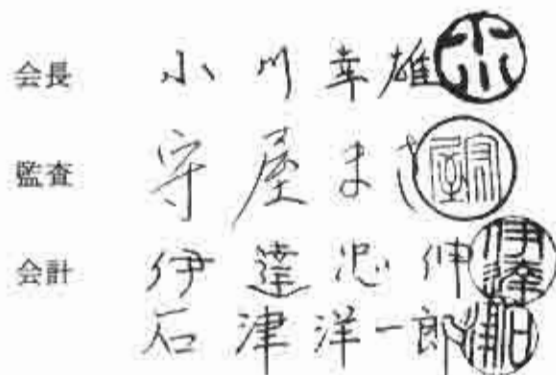 会長 小川幸雄 小川
監査 守屋ま 守屋
会計 伊達忠伸 伊達
石津洋一郎 石津